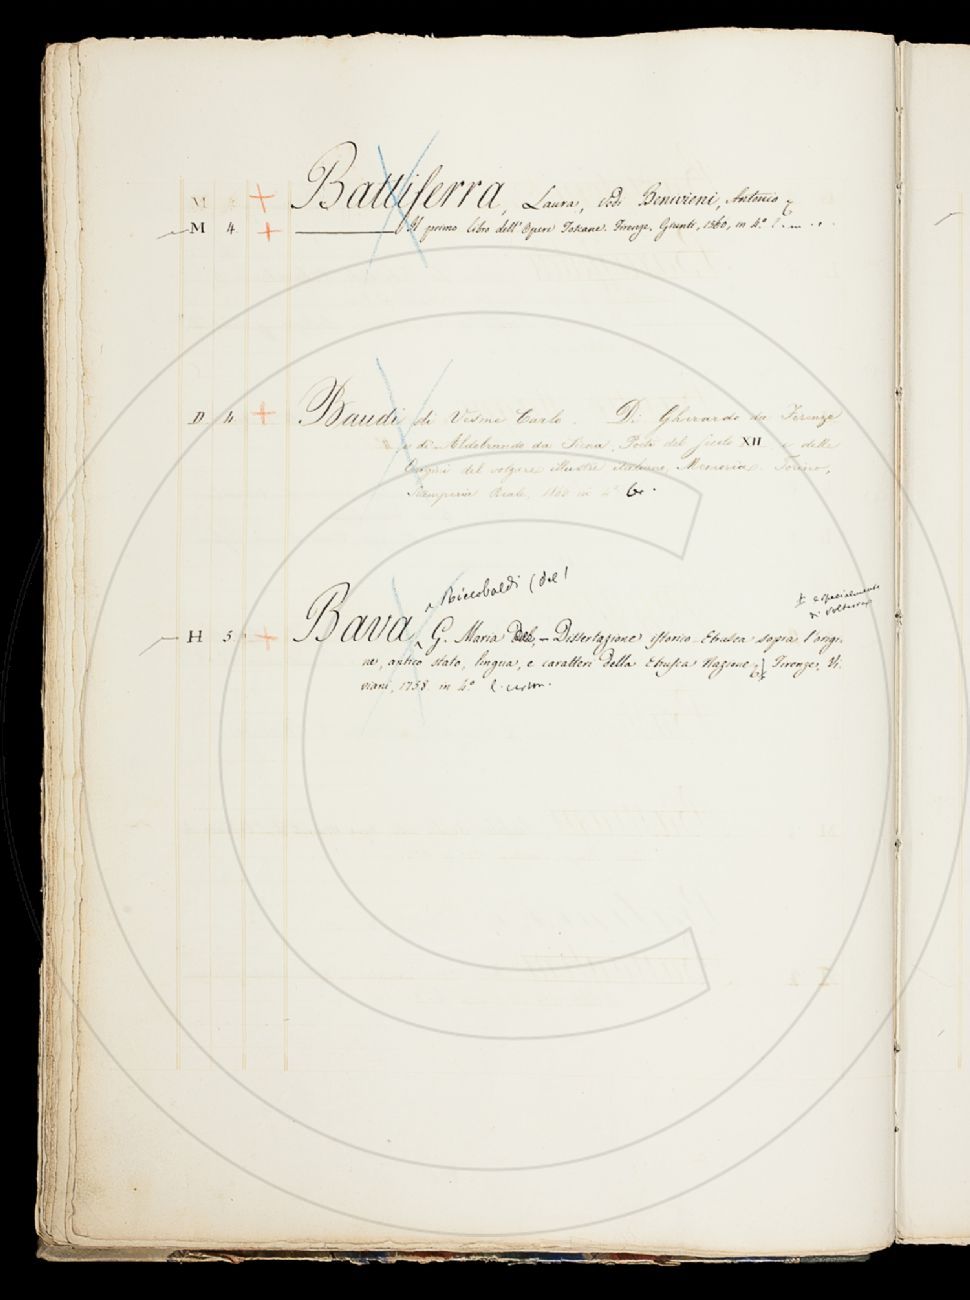 M 4 + Battiferra, Laura, Vedi Benivieni, Antonio
M 4. + Il primo libro dell'Opere Toscane. Firenze, Giunti, 1560, in 4.º
D 4. + Baudi di Vesme Carlo. Di Gherardo da Firenze
e di Aldobrando da Siena, Poeti del secolo XII e delle
Origini del volgare illustre italiano, Memoria. Torino,
Stamperia Reale, 1866 in 4º
e Riccobaldi (del)
± especialmente
di Volterra
H 5. + Bava G. Maria Dell, - Dissertazione istorico-Etrusca sopra l'origi-
ne, antico stato, lingua, e caratteri della Etrusca Nazione, Firenze, Vi-
viani, 1758. in 4.º